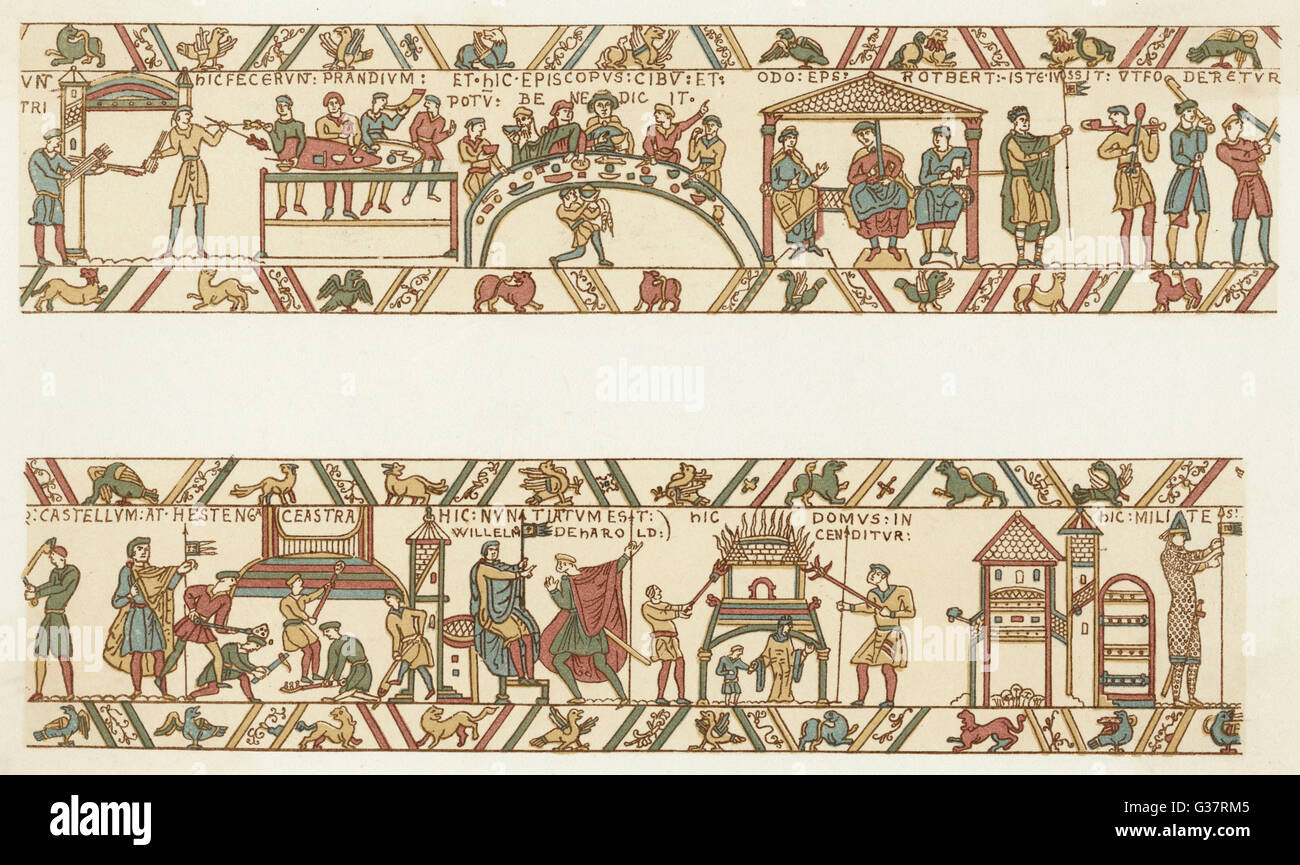 VNT HIC FECERVNT: PRANDIVM: ET·HIC·EPISCOPVS: CIBV: ET: ODO: EPS: ROTBERT:·ISTE·IVSSIT: VTFO DERETVR
TRI POTV̄: BE NE DIC IT·
:CASTELLVM: AT· HESTENGA CEASTRA HIC: NVN TIATVM EST: HIC DOMVS: IN HIC: MILITES:
WILLELM DE HAROLD:) CENDITVR:
alamy stock photo
alamy
Image ID: G37RM5
www.alamy.com